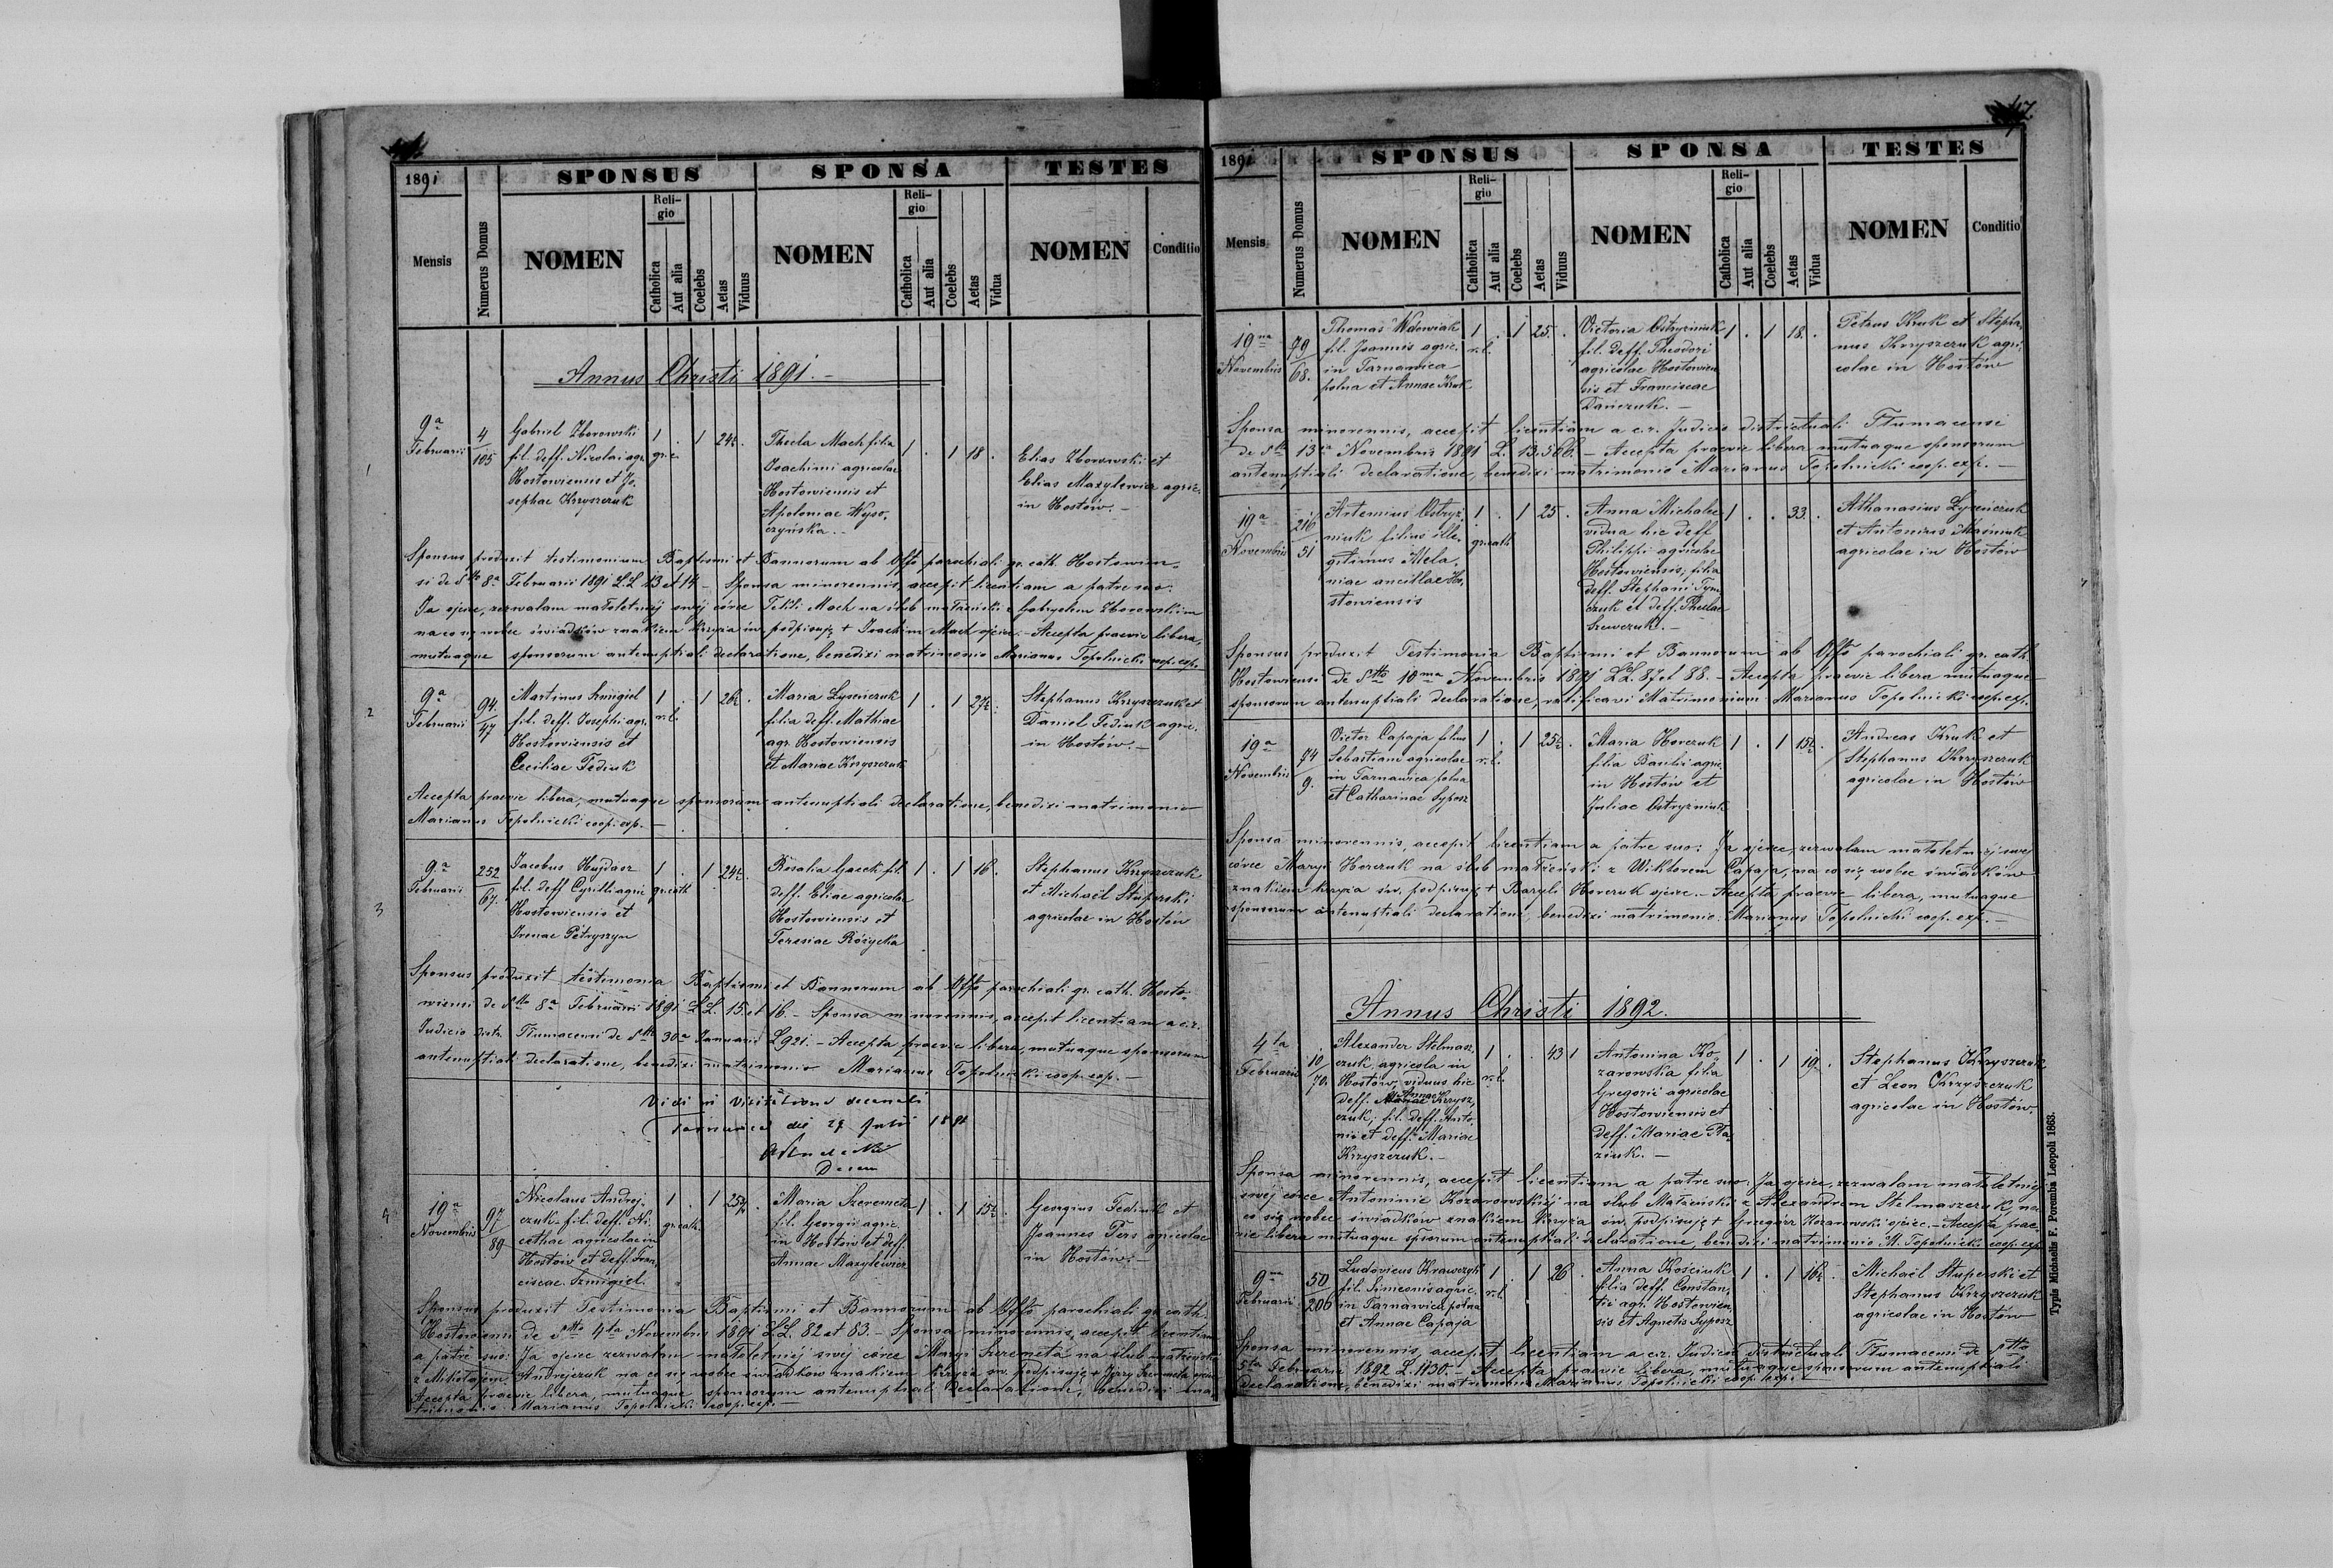 1891
SPONSUS
SPONSA
TESTES
Mensis
Numerus Domus
NOMEN
Reli-
gio
Catholica
Aut alia
Coelebs
Aetas
Viduus
NOMEN
Reli-
gio
Catholica
Aut alia
Coelebs
Aetas
Vidua
NOMEN
Conditio
Annus Christi 1891. —
1
9a
Februarii
4
105
Gabriel Zborowski
fil. deff. Nicolai agr.
Hostowiensis et Jo-
sephae Krzyszczuk
1 . 1 24½ .
gr.c.
Thecla Mach filia
Joachimi agricolae
Hostowiensis et
Apoloniae Wyso-
czyńska. —
1 . 1 18 .
Elias Zborowski et
Elias Mazylewicz agric.
in Hostów. —
Sponsus produxit testimonium Baptismi et Bannorum ab Offo parochiali gr. cath. Hostowien-
si de dtto 8a Februarii 1891 L.L. 13 et 14. — Sponsa minorennis, accepit licentiam a patre suo:
Ja ojciec, zezwalam małoletniej swej córce Tekli Mach na ślub małżeński z Gabryelem Zborowskim
na co się wobec świadków znakiem krzyża św. podpisuję + Joachim Mach ojciec. — Accepta praevie libera,
mutuaque sponsorum antenuptiali declaratione, benedixi matrimonio Marianus Topolnicki coop. exp.
2
9a
Februarii
94.
47
Martinus Szmigiel
fil. deff. Josephi agr.
Hostowiensis et
Ceciliae Fediuk
1 . 1 26½ .
r.l.
Maria Łyseńczuk
filia deff. Mathiae
agr. Hostowiensis
et Mariae Krzyszczuk
1 . 1 27½ .
Stephanus Krzyszczuk et
Daniel Fediuk agric.
in Hostów. —
Accepta praevie libera, mutuaque sponsorum antenuptiali declaratione, benedixi matrimonio
Marianus Topolnicki coop. exp. —
3
9a
Februarii
252
67.
Jacobus Hujdasz
fil. deff Cyrilli agric.
Hostowiensis et
Irenae Petryszyn
1 . 1 24½ .
gr. cath
Rosalia Gacek fil.
deff. Eliae agricolae
Hostowiensis et
Teresiae Różycka
1 . 1 16 .
Stephanus Krzyszczuk
et Michaël Stuperski
agricolae in Hostów
Sponsus produxit testimonia Baptismi et Bannorum ab Offo parochiali gr. cath. Hosto-
wiensi de dtto 8a Februarii 1891 L.L. 15. et 16. — Sponsa minorennis, accepit licentiam a c.r.
Judicio distr. Tłumacensi de dtto 30a Januarii L. 921. — Accepta praevie libera, mutuaque sponsorum
antenuptiali declaratione, benedixi matrimonio Marianus Topolnicki coop. exp. —
Vidi in visitatione decanali
die 27 Julii 1891
4
19a
Novembris
97
89
Nicolaus Andrej-
czuk fil. deff. Ni-
cethae agricolae in
Hostów et deff. Fran-
ciscae Szmigiel.
1 . 1 25¾ .
gr. cath.
Maria Szeremeta
fil. Georgii agric.
in Hostów et deff.
Annae Mazylewicz
1 . 1 15½ .
Georgius Fediuk et
Joannes Fers agricolae
in Hostów. —
Sponsus produxit Testimonia Baptismi et Bannorum ab Offo parochiali gr. cath.
Hostowiensi de dtto 4ta Novembris 1891 L.L. 82 et 83. — Sponsa minorennis, accepit licentiam
a patre suo: Ja ojciec zezwalam małoletniej swej córce Maryi Szeremeta na ślub małżeński
z Mikołajem Andrejczuk na co się wobec świadków znakiem krzyża św. podpisuję + Jerzy Szeremeta ojciec.
Accepta praevie libera, mutuaque sponsorum antenuptiali declaratione, benedixi ma-
trimonio Marianus Topolnicki coop. exp. —
47
1891
SPONSUS
SPONSA
TESTES
Mensis
Numerus Domus
NOMEN
Reli-
gio
Catholica
Aut alia
Coelebs
Aetas
Viduus
NOMEN
Reli-
gio
Catholica
Aut alia
Coelebs
Aetas
Vidua
NOMEN
Conditio
19na
Novembris
79
68.
Thomas Wdowiak
fil. Joannis agric.
in Tarnawica
polna et Annae Kruk
1 . 1 25 .
r.l.
Victoria Ostryżniuk
fil. deff. Theodori
agricolae Hostowien
sis et Franciscae
Dańczuk. —
1 . 1 18. .
Petrus Kruk et Stepha-
nus Krzyszczuk agri-
colae in Hostów
Sponsa minorennis, accepit licentiam a c.r. Judicio districtuali Tłumacensi
de dtto 13a Novembris 1891 L. 13.566. — Accepta praevie libera mutuaque sponsorum
antenuptiali declaratione, benedixi matrimonio Marianus Topolnicki coop. exp. —
19a
Novembris
216
51
Artemius Ostryż-
niuk filius ille-
gitimus Mela-
niae ancillae Ho-
stowiensis
1 . 1 25 .
gr. cath
Anna Michalec
vidua hic deff
Philippi agricolae
Hostowiensis, filia
deff. Stephani Tym-
czuk et deff. Theclae
Szewczuk. —
1 . . 33. .
Athanasius Łyseńczuk
et Antonius Maśniuk
agricolae in Hostów
Sponsus produxit Testimonia Baptismi et Bannorum ab Offo parochiali gr. cath.
Hostowiensi de dtto 10ma Novembris 1891 L.L. 87 et 88. — Accepta praevie libera mutuaque
sponsorum antenuptiali declaratione, ratificavi Matrimonium Marianus Topolnicki coop. exp.
19a
Novembris
74
9.
Victor Capaja filius
Sebastiani agricolae
in Tarnawica polna
et Catharinae Syposz
1 . 1 25½ .
r.l.
Maria Horczuk
filia Basilii agric.
in Hostów et
Juliae Ostryżniuk
1 . 1 15½ .
Andreas Kruk et
Stephanus Krzyszczuk
agricolae in Hostów
Sponsa minorennis, accepit licentiam a patre suo: Ja ojciec, zezwalam małoletniej swej
córce Maryi Horczuk na ślub małżeński z Wiktorem Capaja, na co się wobec świadków
znakiem krzyża św. podpisuję + Bazyli Horczuk ojciec. — Accepta praevie libera, mutuaque
sponsorum antenuptiali declaratione, benedixi matrimonio: Marianus Topolnicki coop. exp. —
Annus Christi 1892.
4ta
Februarii
10
70.
Alexander Stelmasz-
czuk agricola in
Hostów, viduus hic
deff. Annae Krzysz-
czuk; fil. deff. Anto-
nii et deff. Mariae
Krzyszczuk. —
1 . . 43 1
r.l.
Antonina Ko-
zarowska filia
Gregorii agricolae
Hostowiensis et
deff. Mariae Pa-
ziuk. —
1 . 1 19 .
Stephanus Krzyszczuk
et Leon Krzyszczuk
agricolae in Hostów.
Sponsa minorennis, accepit licentiam a patre suo: Ja ojciec, zezwalam małoletniej
swej córce Antoninie Kozarowskiej na ślub Małżeński z Alexandrem Stelmaszczuk, na
co się wobec świadków znakiem krzyża św. podpisuję + Grzegórz Kozarowski ojciec. — Accepta prae-
vie libera mutuaque spsorum antenuptiali declaratione, benedixi matrimonio M. Topolnicki coop. exp.
9na
Februarii
50
206
Ludovicus Krawczyk
fil. Simeonis agric.
in Tarnawica polna
et Annae Capaja
1 . 1 26 .
r.l.
Anna Kościuk
filia deff. Constan-
tii agr. Hostowien-
sis et Agnetis Syposz
1 . 1 16½ .
Michaël Stuperski et
Stephanus Krzyszczuk
agricolae in Hostów
Sponsa minorennis, accepit licentiam a c.r. Judicio Districtuali Tłumacensi de dtto
5ta Februarii 1892 L. 1130. — Accepta praevie libera, mutuaque sponsorum antenuptiali
declaratione, benedixi matrimonio Marianus Topolnicki coop. exp. —
Typis Michaelis F. Poremba Leopoli 1863.